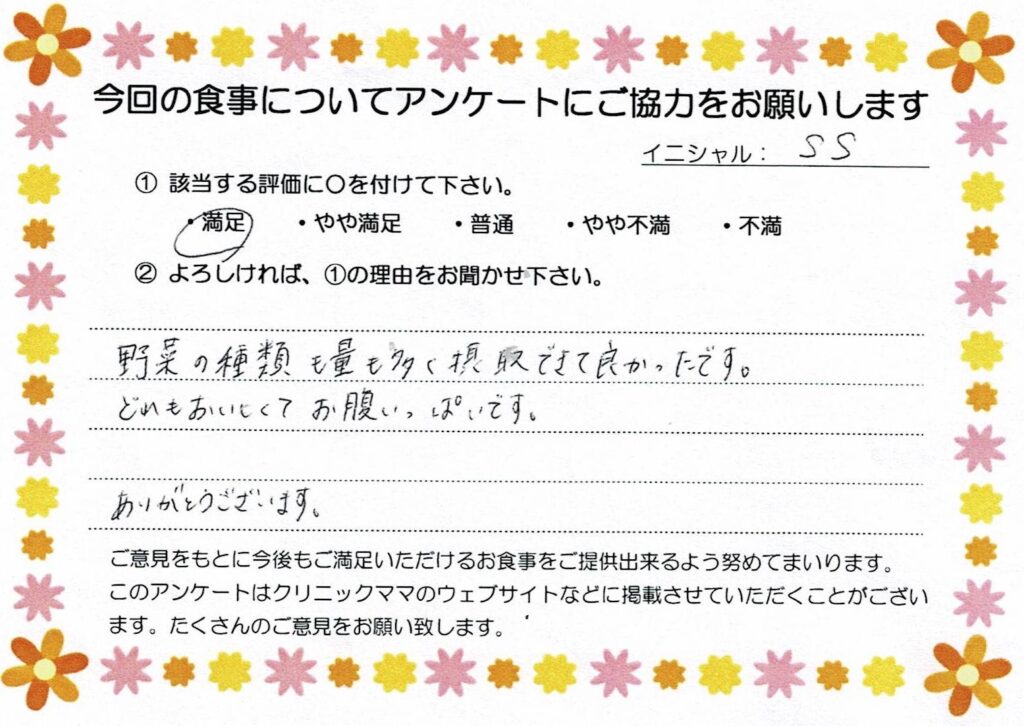 今回の食事についてアンケートにご協力をお願いします
イニシャル： SS
① 該当する評価に〇を付けて下さい。
・満足 ・やや満足 ・普通 ・やや不満 ・不満
② よろしければ、①の理由をお聞かせ下さい。
野菜の種類も量も多く摂取できて良かったです。
どれもおいしくてお腹いっぱいです。
ありがとうございます。
ご意見をもとに今後もご満足いただけるお食事をご提供出来るよう努めてまいります。
このアンケートはクリニックママのウェブサイトなどに掲載させていただくことがござい
ます。たくさんのご意見をお願い致します。